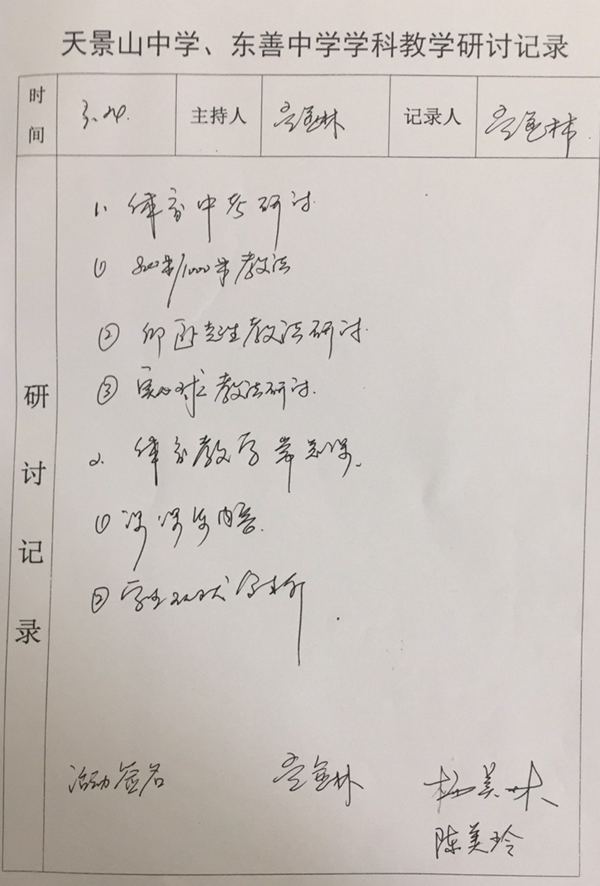 天景山中学、东善中学学科教学研讨记录
时间 3.24. 主持人 记录人
研讨记录
1. 体育中考研讨
① 800米/1000米教法
② 仰卧起坐教法研讨.
③ 实心球教法研讨.
2. 体育教学常规课.
① 课内容.
② 学生现状分析.
活动签名 杨美
陈美玲